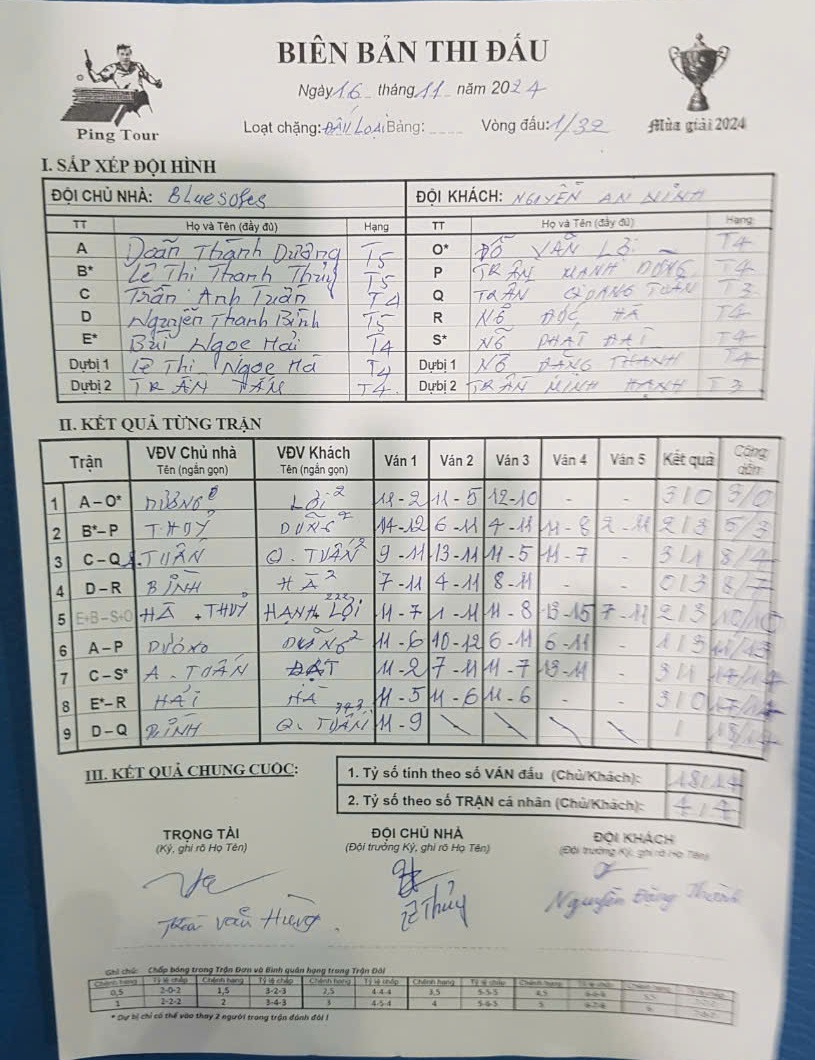 BIÊN BẢN THI ĐẤU
Ping Tour
Ngày 16 tháng 11 năm 2024
Loạt chặng: ĐẤU LOẠI Bảng: Vòng đấu: 1/32
Mùa giải 2024
I. SẮP XẾP ĐỘI HÌNH
ĐỘI CHỦ NHÀ: Bluesofes ĐỘI KHÁCH: NGUYỄN AN NINH
TT Họ và Tên (đầy đủ) Hạng TT Họ và Tên (đầy đủ) Hạng
A Doãn Thành Dương T5 O* ĐỖ VĂN LỢI T4
B* Lê Thị Thanh Thủy T5 P TRẦN MẠNH DŨNG T4
C Trần Anh Tuấn T4 Q TRẦN QUANG TUẤN T3
D Nguyễn Thanh Bình T5 R NGÔ ĐỨC HÀ T4
E* Bùi Ngọc Hải T4 S* NGÔ PHÁT ĐẠT T4
Dự bị 1 Lê Thị Ngọc Hà T4 Dự bị 1 ĐĂNG THÀNH T4
Dự bị 2 TRẦN TẤN T4 Dự bị 2 TRẦN MINH HẠNH T3
II. KẾT QUẢ TỪNG TRẬN
Trận VĐV Chủ nhà Tên (ngắn gọn) VĐV Khách Tên (ngắn gọn) Ván 1 Ván 2 Ván 3 Ván 4 Ván 5 Kết quả Cộng dồn
1 A – O* DƯƠNG LỢI 2 11-2 11-5 12-10 - - 3/0 3/0
2 B*– P THUỶ DŨNG 2 14-12 6-11 4-11 11-8 2-11 2/3 5/3
3 C – Q A. TUẤN Q. TUẤN 2 9-11 13-11 11-5 11-7 - 3/1 8/4
4 D – R BÌNH HÀ 2 7-11 4-11 8-11 - - 0/3 8/7
5 E+B – S+O HÀ + THUỶ HẠNH LỢI 222 11-7 1-11 11-8 13-15 7-11 2/3 10/10
6 A – P DƯƠNG DŨNG 2 11-6 10-12 6-11 6-11 - 1/3 11/13
7 C – S* A. TUẤN ĐẠT 11-2 7-11 11-7 13-11 - 3/1 14/14
8 E*– R HẢI HÀ 11-5 11-6 11-6 3/0 17/14
9 D – Q BÌNH Q. TUẤN 323 11-9 1 18/14
III. KẾT QUẢ CHUNG CUỘC:
1. Tỷ số tính theo số VÁN đấu (Chủ/Khách): 18/14
2. Tỷ số theo số TRẬN cá nhân (Chủ/Khách): 4/4
TRỌNG TÀI ĐỘI CHỦ NHÀ ĐỘI KHÁCH
(Ký, ghi rõ Họ Tên) (Đội trưởng Ký, ghi rõ Họ Tên) (Đội trưởng Ký, ghi rõ Họ Tên)
Văn Hùng Lê Thủy Nguyễn Đăng Thành
Ghi chú: Chấp bóng trong Trận Đơn và Bình quân hạng trong Trận Đôi
Chênh hạng Tỷ lệ chấp Chênh hạng Tỷ lệ chấp Chênh hạng Tỷ lệ chấp Chênh hạng Tỷ lệ chấp Chênh hạng Tỷ lệ chấp Chênh hạng Tỷ lệ chấp
0,5 2-0-2 1,5 3-2-3 2,5 4-4-4 3,5 5-5-5 4,5 6-6-6 5,5
1 2-2-2 2 3-4-3 3 4-5-4 4 5-6-5 5 6-7-6 6
* Dự bị chỉ có thể vào thay 2 người trong trận đánh đôi !